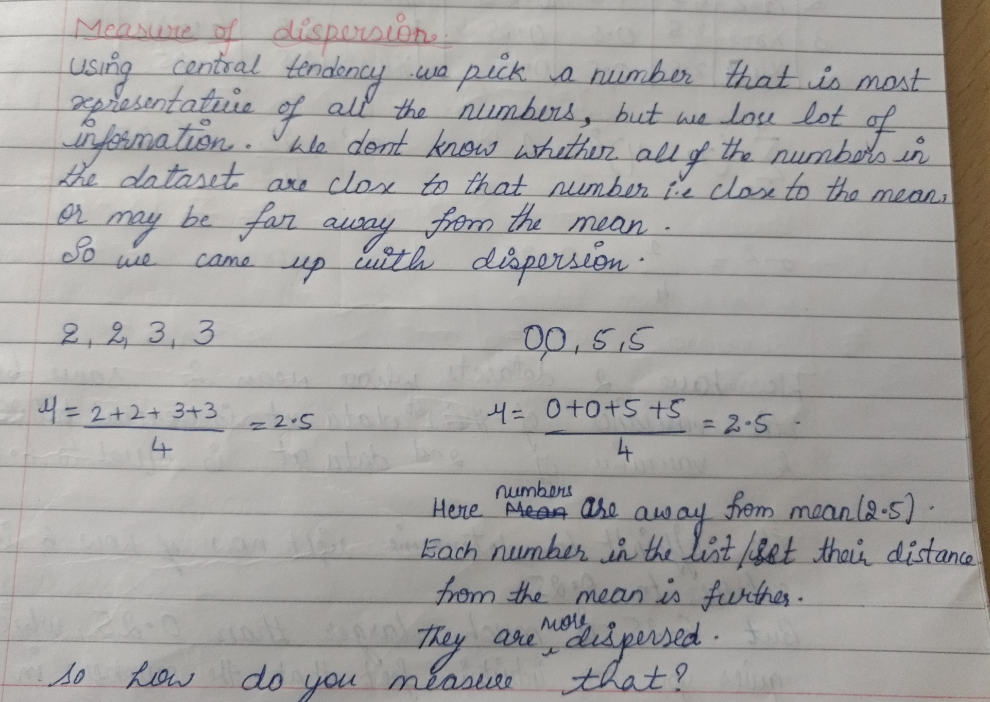 Measure of dispersion.
Using central tendency we pick a number that is most
representative of all the numbers, but we lose lot of
information. We dont know whether all of the numbers in
the dataset are close to that number i.e close to the mean,
or may be far away from the mean.
So we came up with dispersion.
2, 2, 3, 3
0,0, 5,5
μ = 2+2+3+3/4 = 2.5
μ = 0+0+5+5/4 = 2.5
Here numbers are away from mean (2.5).
Each number in the list/set their distance
from the mean is further.
They are more dispersed.
so how do you measure that?